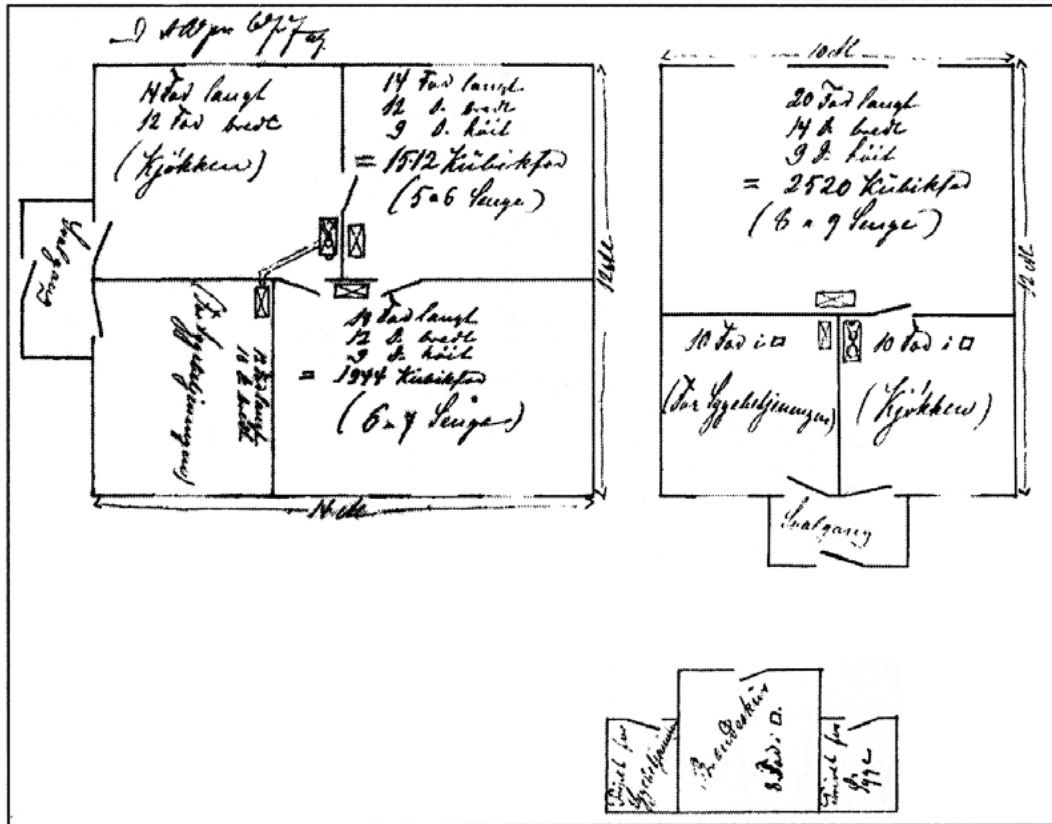 14 Fod langt
12 Fod bredt
(Kjøkken)
14 Fod langt
12 D. bredt
9 D. höit
= 1512 Kübikfod
(5 a 6 Senge)
Svalgang
(For Sygebetjeningen)
12 Fod langt
bredt
Fod langt
12 D. bredt
9 D. höit
= 1944 Kübikfod
(6 a 7 Senge)
12 Al
14 Al
10 Al
20 Fod langt
14 D. bredt
9 D. höit
= 2520 Kübikfod
(8 a 9 Senge)
12 Al
10 Fod i □
(For Sygebetjeningen)
10 Fod i □
(Kjøkken)
Svalgang
for
Sygebetjening
Brændeskür
8 Fod i □.
for
Syge